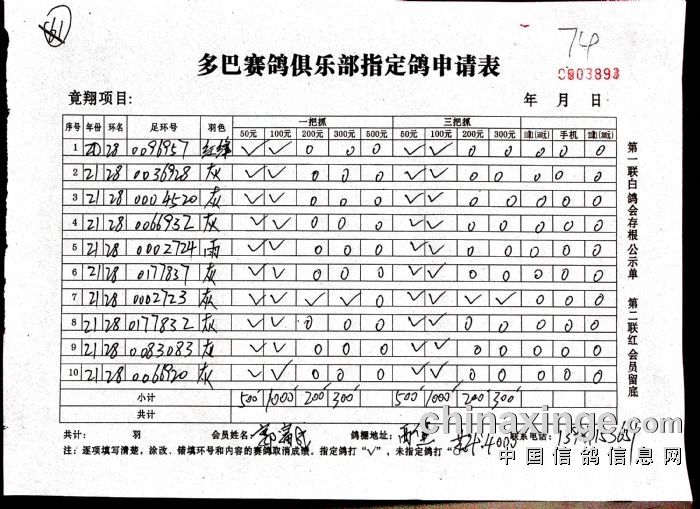 161
74
多巴赛鸽俱乐部指定鸽申请表
0003893
竟翔项目: 年 月 日
序号 年份 环名 足环号 羽色 一把抓 三把抓
50元 100元 200元 300元 500元 50元 100元 200元 300元 手机
1 20 28 0096957 红绛 √ √ 0 0 0 √ √ 0 0 0 0 0
2 21 28 0036928 灰 √ √ 0 0 0 √ √ 0 0 0 0 0
3 21 28 0004520 灰 √ √ 0 0 0 √ √ 0 0 0 0 0
4 21 28 0066932 灰 √ √ 0 0 0 √ √ 0 0 0 0 0
5 21 28 0002724 雨 √ √ 0 0 0 √ √ 0 0 0 0 0
6 21 28 0177837 灰 √ √ 0 0 0 √ √ 0 0 0 0 0
7 21 28 0002723 灰 √ √ √ √ 0 √ √ √ √ 0 0 0
8 21 28 0177832 灰 √ √ 0 0 0 √ √ 0 0 0 0 0
9 21 28 0083083 灰 √ √ 0 0 0 √ √ 0 0 0 0 0
10 21 28 0066920 灰 √ √ 0 0 0 √ √ 0 0 0 0 0
小计 500 1000 200 300 500 1000 200 300
共计
共计: 羽 会员姓名: 鸽棚地址: 联系电话:
共计4000
注: 逐项填写清楚，涂改、错填环号和内容的赛鸽取消成绩。指定鸽打"√"，未指定鸽打"
第一联白 鸽会存根 公示单 第二联红 会员留底
chinaxinge.com
中国信鸽信息网